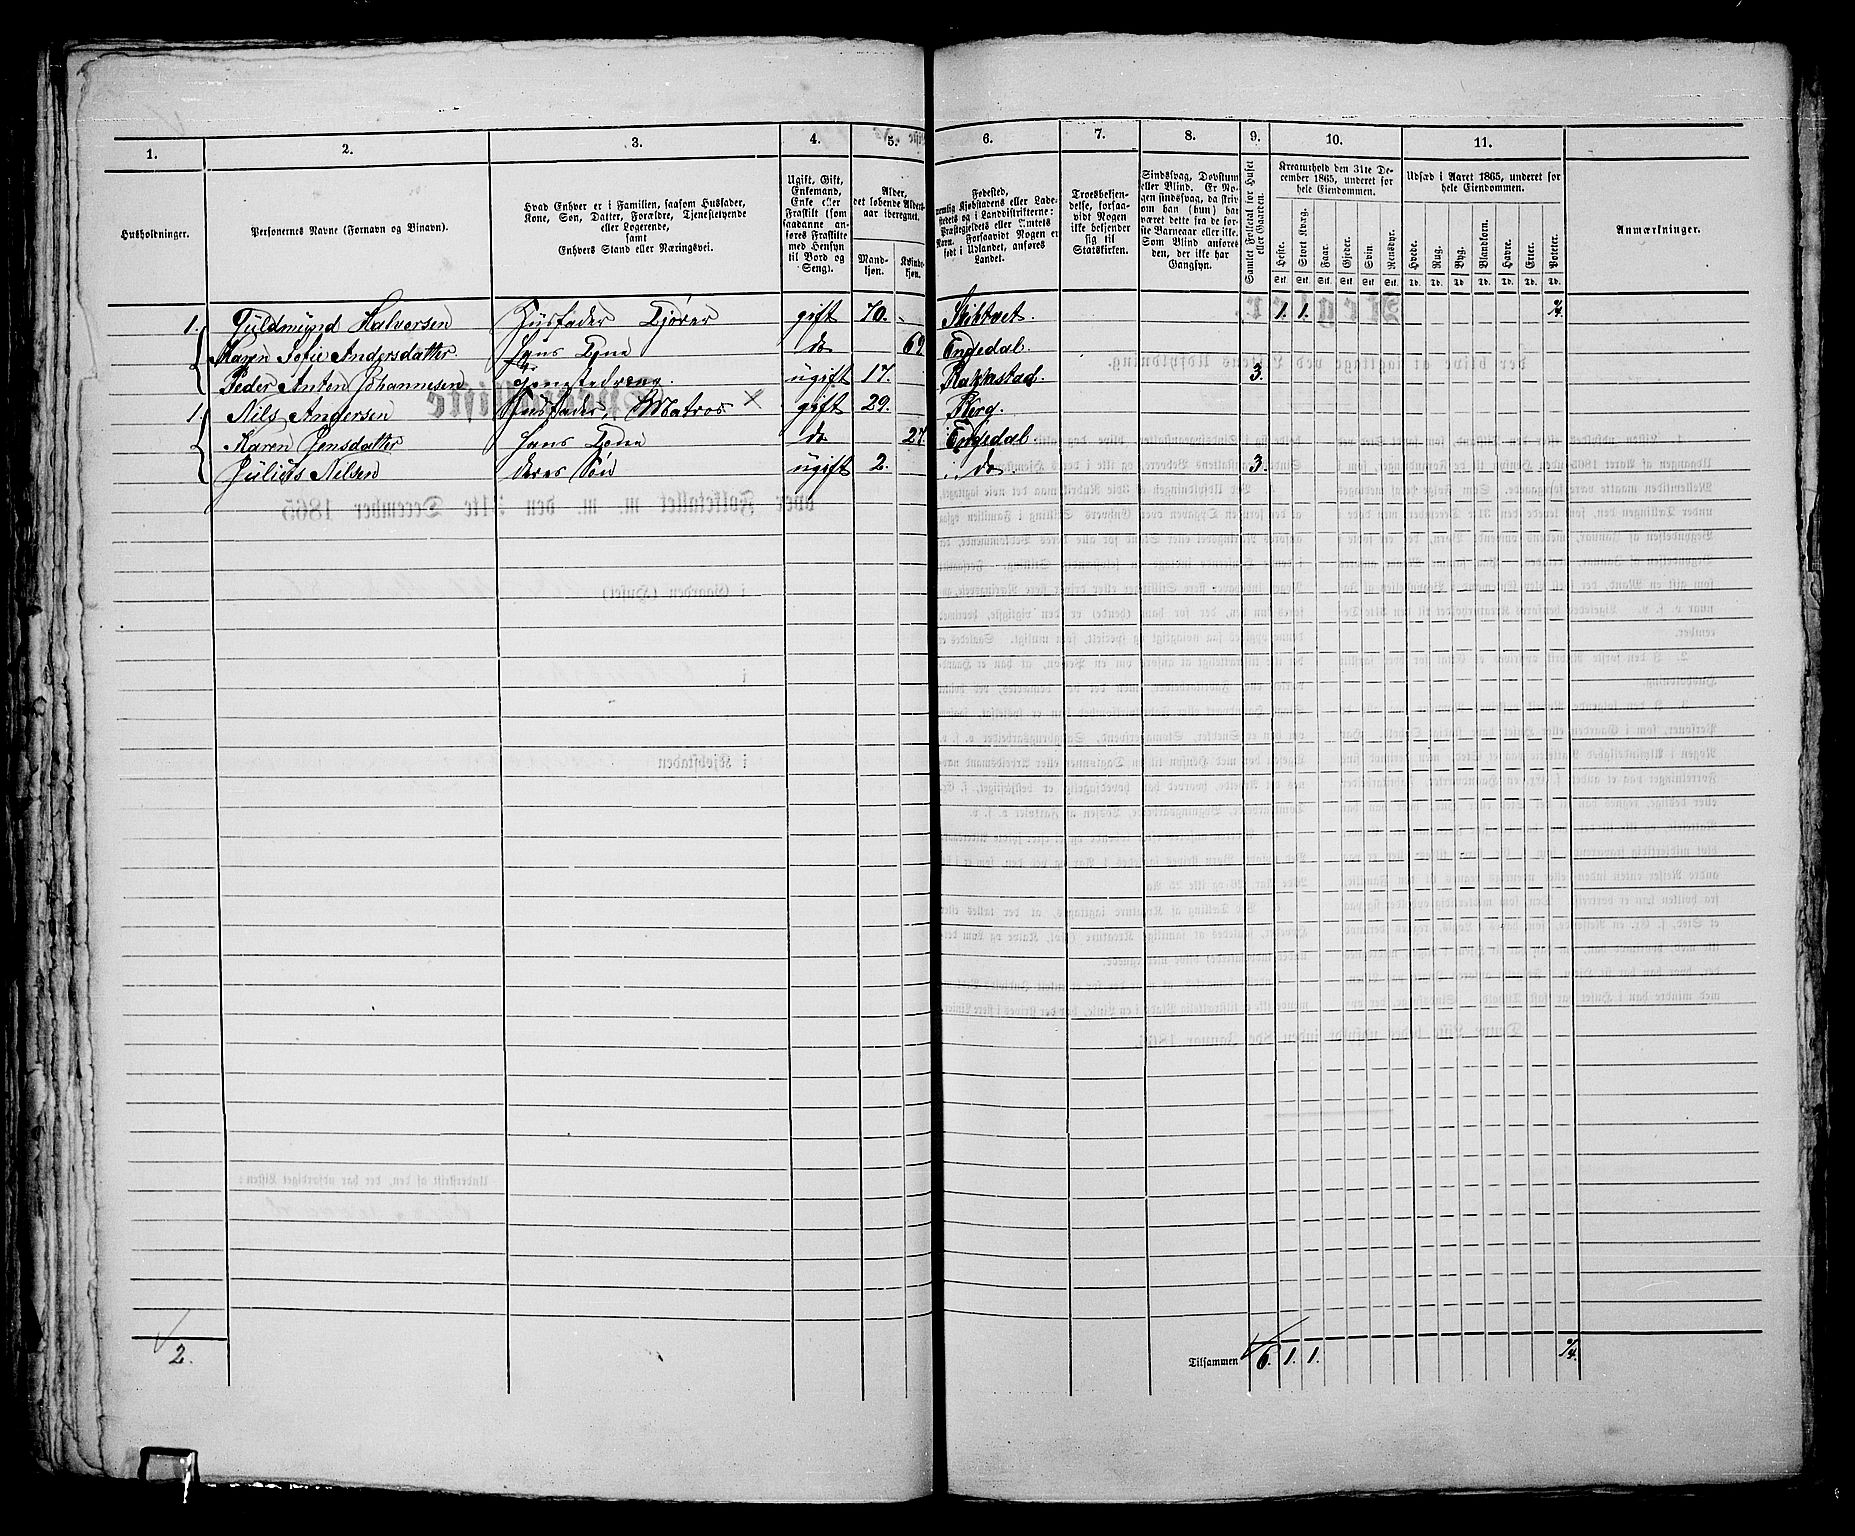 1. 2. 3. 4. 5. 6. 7. 8. 9. 10. 11.
Husholdninger.
Personernes Navne (Fornavn og Binavn).
Hvad Enhver er i Familien, saasom Husfader,
Kone, Søn, Datter, Forældre, Tjenestetyende
eller Logerende,
samt
Enhvers Stand eller Næringsvei.
Ugift, Gift,
Enkemand,
Enke eller
Fraskilt (som
saadanne an-
føres Fraskilte
med Hensyn
til Bord og
Seng).
Alder,
det løbende Alders-
aar iberegnet.
Mand-
kjøn.
Kvinde-
kjøn.
Fødested,
nemlig Kjøbstadens eller Lade-
stedets og i Landdistrikterne:
Præstegjeldets eller Amtets
Navn. Forsaavidt Nogen er
født i Udlandet, anføres
Landet.
Troesbekjen-
delse, forsaa-
vidt Nogen
ikke bekjender
sig til
Statskirken.
Sindssvag, Døvstum
eller Blind. Er No-
gen sindssvag, da skriv
om han (hun) har
været dette fra de før-
ste Barneaar eller ikke.
Som Blind anføres
den, der ikke har
Gangsyn.
Samlet Folketal for Huset
eller Gaarden.
Kreaturhold den 31te De-
cember 1865, underet for
hele Eiendommen.
Heste. Stort Kvæg. Faar. Gjeder. Svin. Rensdyr.
Stk. Stk. Stk. Stk. Stk. Stk.
Udsæd i Aaret 1865, underet for
hele Eiendommen.
Hvede. Rug. Byg. Blandkorn. Havre. Erter. Poteter.
Td. Td. Td. Td. Td. Td. Td.
Anmærkninger.
1. Guldmund Halvorsen Husfader Kjører gift 70. Skibtvet. 1. 1. 1/4.
Karen Sofie Andersdatter. Hans Kone do 69 Engedal.
Peder Anton Johannesen Tjenestedreng. ugift 17. Rakkestad. 3.
1. Nils Andersen Husfader, Matros × gift 29. Berg.
Karen Jensdatter Hans Kone do 27. Engedal.
Julius Nilsen deres Søn ugift 2. do 3.
2. Tilsammen 6. 1. 1. 1/4.